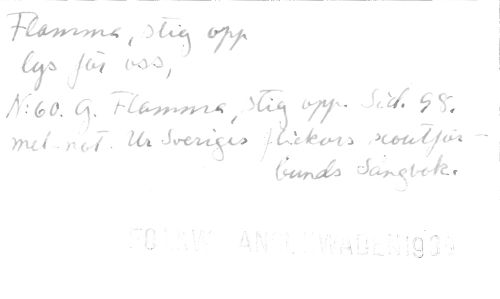 Flamma, stig opp
lys för oss,
N:60. G. Flamma, stig opp. Sid. 98.
mel. not. Ur Sveriges flickors scoutför-
bunds Sångbok.